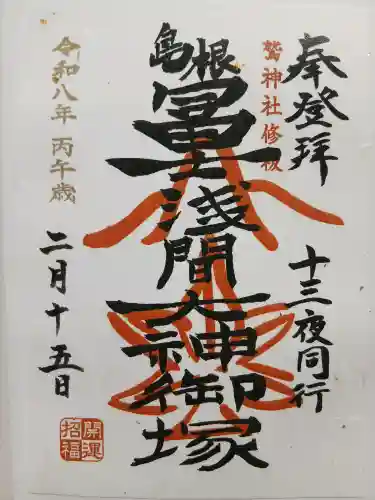 奉登拝
十三夜同行
鷲神社修祓
島根
富士浅間大神御塚
令和八年 丙午歳
二月十五日
開運
招福